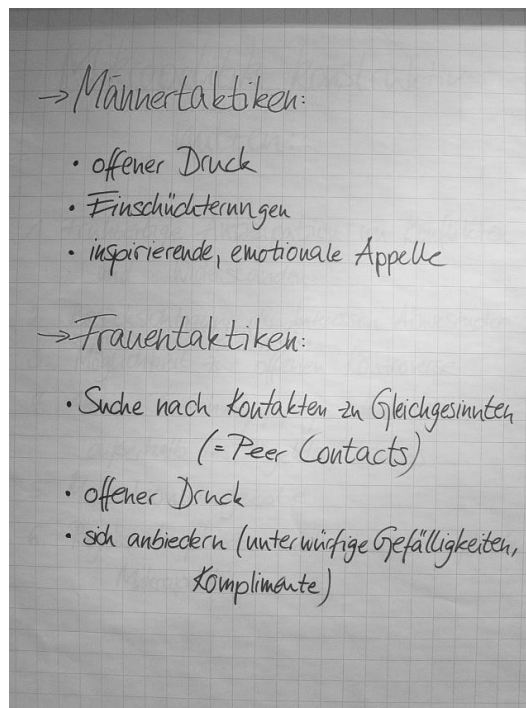 → Männertaktiken:
• offener Druck
• Einschüchterungen
• inspirierende, emotionale Appelle
→ Frauentaktiken:
• Suche nach Kontakten zu Gleichgesinnten
(= Peer Contacts)
• offener Druck
• sich anbiedern (unterwürfige Gefälligkeiten,
Komplimente)